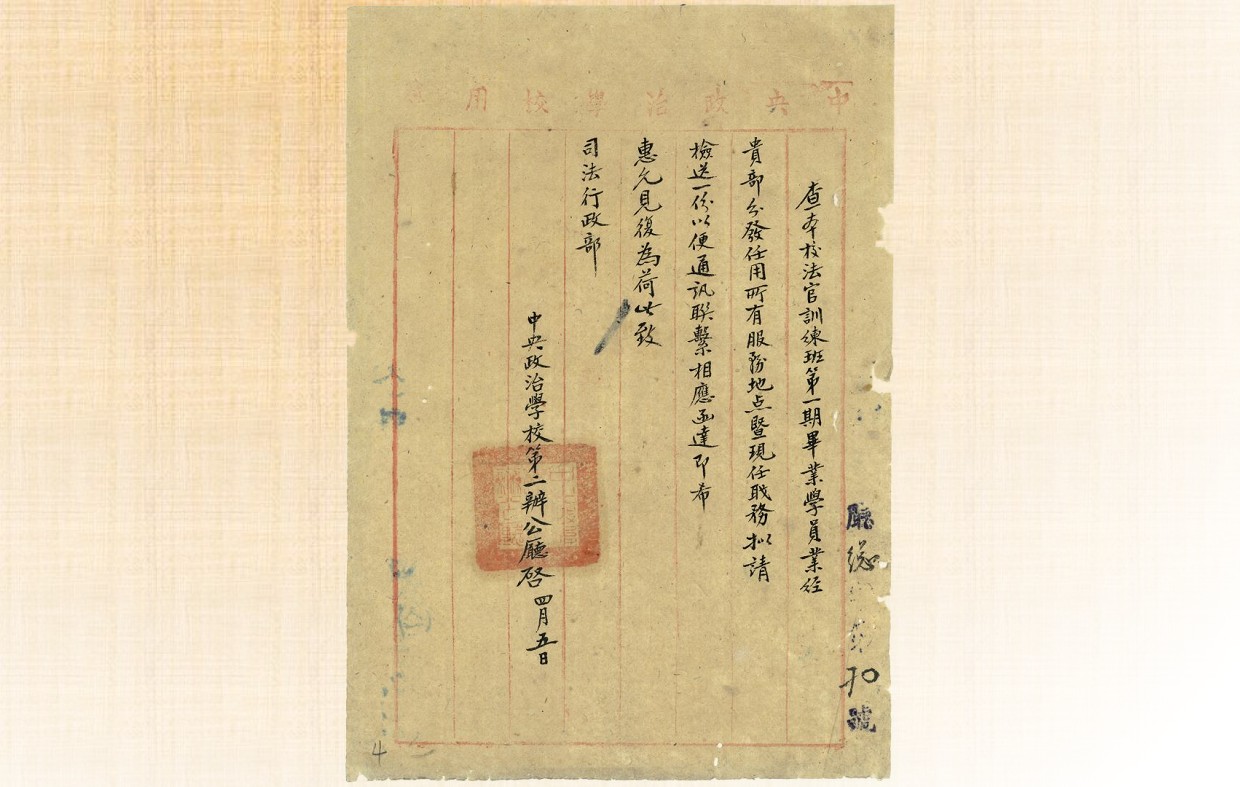 中央政治學校用
查本校法官訓練班第一期畢業學員業經
貴部分發任用所有服務地点暨現任職務拟請
檢送一份以便通訊聯繫相應函達即希
惠允見復為荷此致
司法行政部
中央政治學校第二辦公廳啓 四月五日
廳總
號
4